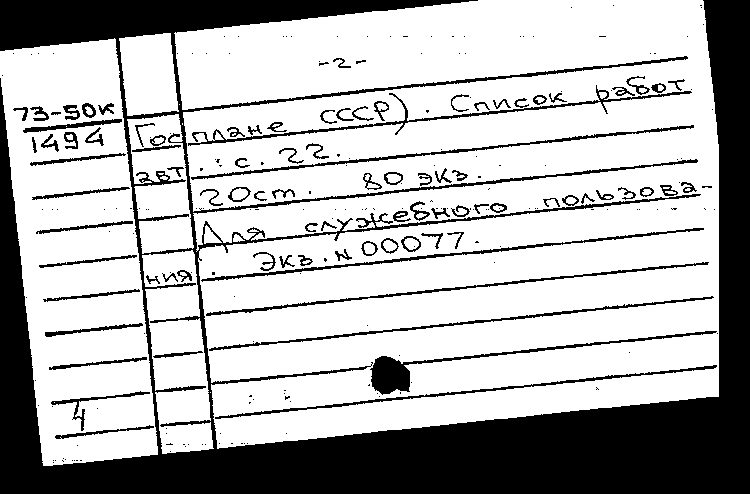 -2-
73-50к
1494
Госплане СССР). Список работ
авт.: с. 22.
20 см. 80 экз.
Для служебного пользова-
ния. Экз. N 00077.
4